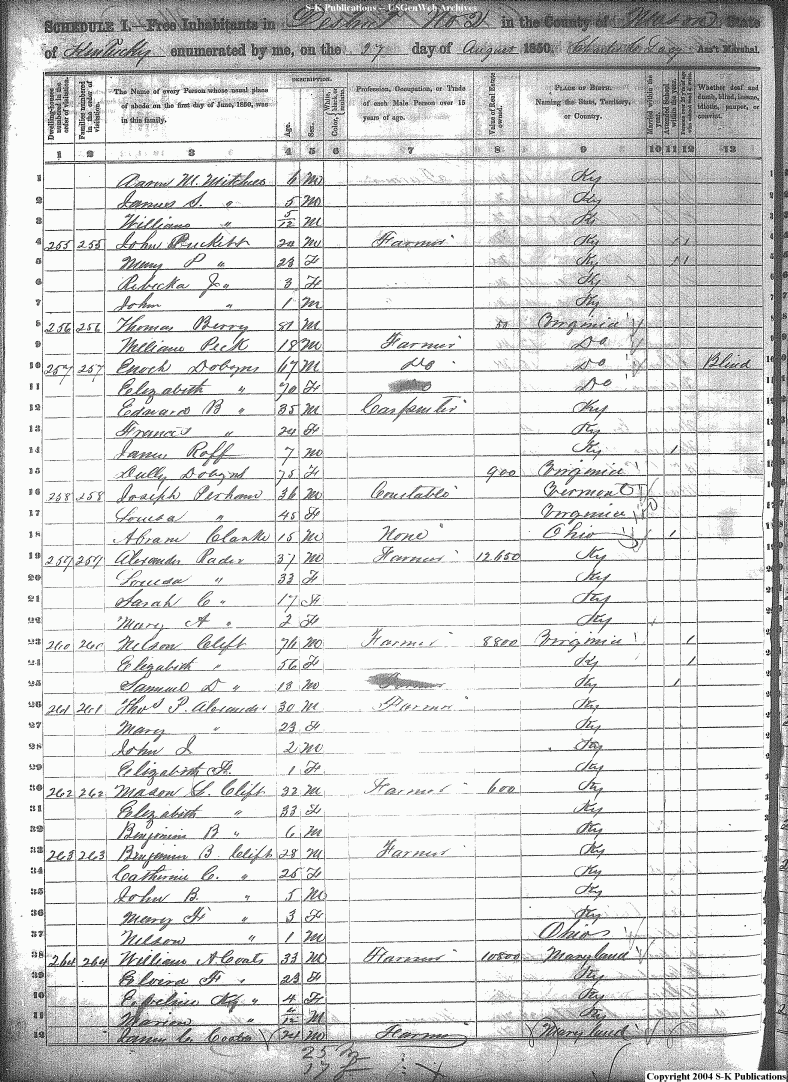 S-K Publications – USGenWeb Archives
SCHEDULE I.—Free Inhabitants in District No 2 in the County of Mason State
of Kentucky enumerated by me, on the 27 day of August 1850. Charles Lacy Ass't Marshal.
Dwelling-houses numbered in the order of visitation. Families numbered in the order of visitation. The Name of every Person whose usual place of abode on the first day of June, 1850, was in this family. DESCRIPTION. Age. Sex. Color, White, black, or mulatto. Profession, Occupation, or Trade of each Male Person over 15 years of age. Value of Real Estate owned. PLACE OF BIRTH. Naming the State, Territory, or Country. Married within the year. Attended School within the year. Whether deaf and dumb, blind, insane, idiotic, pauper, or convict.
1 2 3 4 5 6 7 8 9 10 11 12 13
1 Aaron M. Mitchell 6 M Ky
2 James S. " 5 M Ky
3 William " 5/12 M Ky
4 255 255 John Puckett 24 M Farmer Ky 11
5 Mary P " 23 F Ky 11
6 Rebecka J " 3 F Ky
7 John " 1 M Ky
8 256 256 Thomas Berry 81 M 50 Virginia
9 William Peck 18 M Farmer Do
10 257 257 Enoch Dobyns 67 M Do Do Blind
11 Elizabeth " 70 F Do
12 Edward B " 35 M Carpenter Ky
13 Francis " 24 F Ky
14 James Roff 7 M Ky 1
15 Dobyns 75 F 900 Virginia
16 258 258 Joseph Perham 36 M Constable Vermont
17 Louisa " 45 F Virginia
18 Abram Clarke 15 M None Ohio 1
19 259 259 Alexander 37 M Farmer 12650 Ky
20 Louisa " 33 F Ky
21 Sarah C " 17 F Ky
22 Mary A " 2 F Ky
23 260 260 Nelson Clift 76 M Farmer 8800 Virginia 1
24 Elizabeth " 56 F Ky 1
25 Samuel D " 18 M Ky 1
26 261 261 Thos P. Alexander 30 M Farmer Ky
27 Mary " 23 F Ky
28 John J. 2 M Ky
29 Elizabeth H. 1 F Ky
30 262 262 Mason S. Clift 32 M Farmer 600 Ky
31 Elizabeth " 33 F Ky
32 Benjamin B " 6 M Ky
33 263 263 Benjamin B Clift 28 M Farmer Ky
34 Catherine C. " 25 F Ky
35 John B. " 5 M Ky
36 Mary H " 3 F Ky
37 Nelson " 1 M Ohio
38 264 264 William A Coats 33 M Farmer 10800 Maryland
39 Elvira F " 23 F Ky
40 " 4 F Ky
11 Marion " /12 M Ky
12 James C. Coats 24 M Farmer Maryland
25 M
17 F
Copyright 2004 S-K Publications